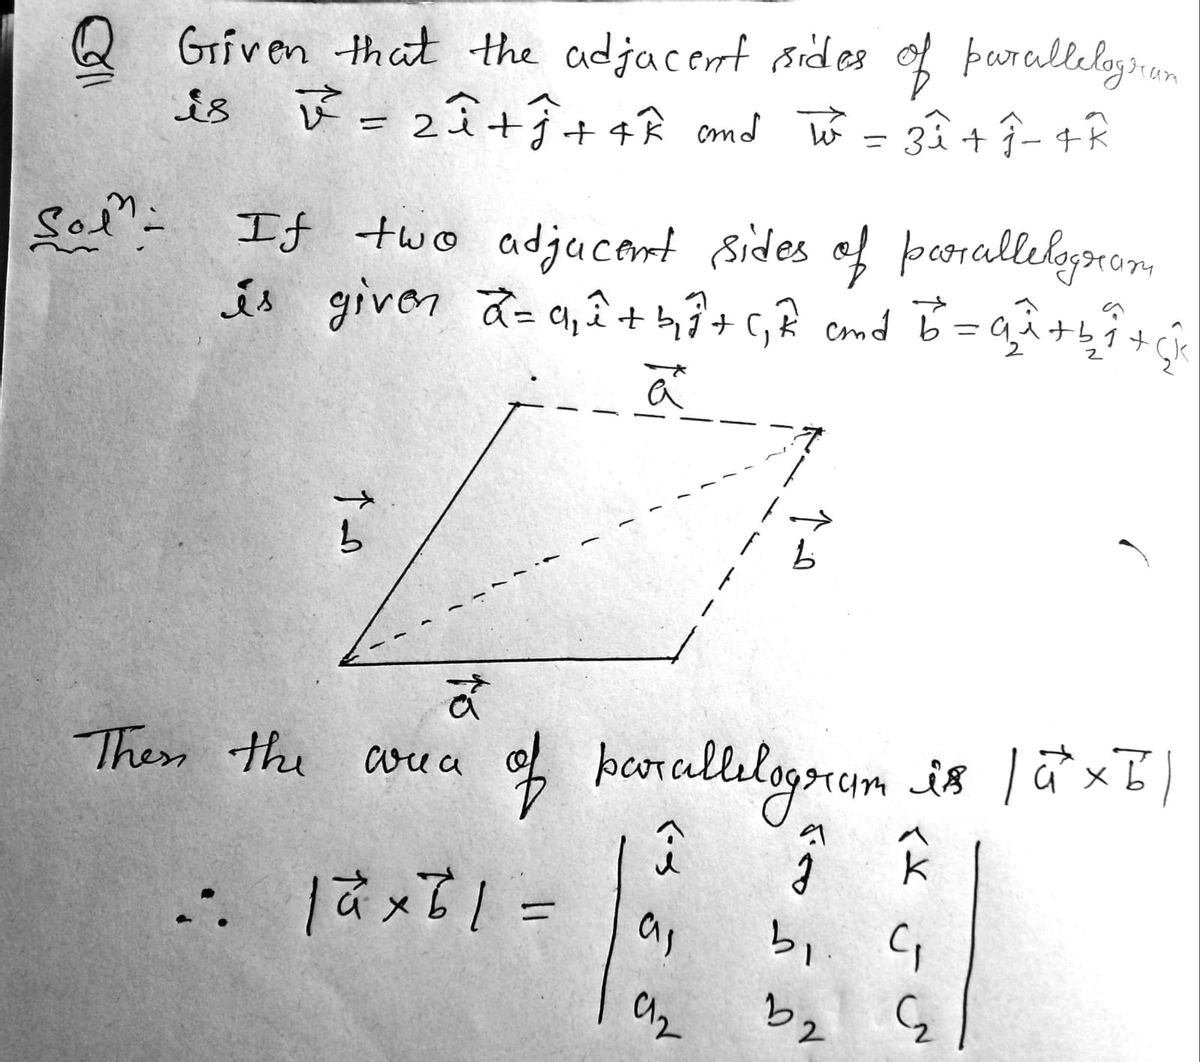 Q Given that the adjacent sides of parallelogram
is v⃗ = 2î + ĵ + 4k̂ and w⃗ = 3î + ĵ - 4k̂
Solⁿ:- If two adjacent sides of parallelogram
is given a⃗ = a₁î + b₁ĵ + c₁k̂ and b⃗ = a₂î + b₂ĵ + c₂k̂
a⃗
b⃗
b⃗
a⃗
Then the area of parallelogram is |a⃗ × b⃗|
∴ |a⃗ × b⃗| = | î ĵ k̂
a₁ b₁ c₁
a₂ b₂ c₂ |